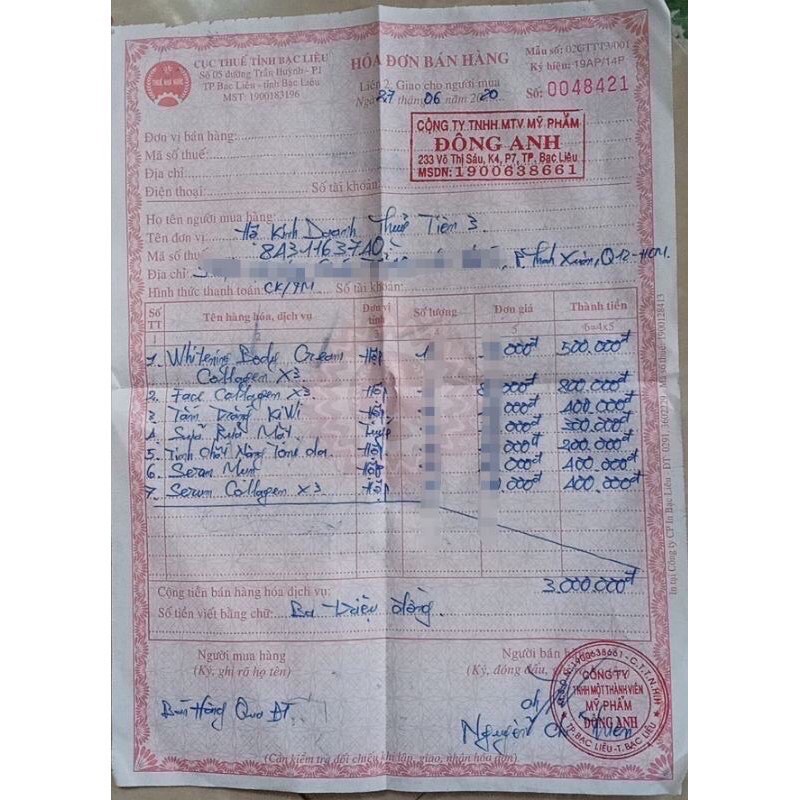 CỤC THUẾ TỈNH BẠC LIÊU
Số 05 đường Trần Huỳnh - P1
TP Bạc Liêu - tỉnh Bạc Liêu
MST: 1900183196
HÓA ĐƠN BÁN HÀNG
Liên 2: Giao cho người mua
Ngày 27 tháng 06 năm 2020
Mẫu số: 02GTTT3/001
Ký hiệu: 19AP/14P
Số: 0048421
Đơn vị bán hàng:
Mã số thuế:
Địa chỉ:
Điện thoại: Số tài khoản:
CÔNG TY TNHH MTV MỸ PHẨM
ĐÔNG ANH
233 Võ Thị Sáu, K4, P7, TP. Bạc Liêu
MSDN: 1900638661
Họ tên người mua hàng:
Tên đơn vị: Hộ Kinh Doanh Thuỷ Tiên 3
Mã số thuế: 8431163740
Địa chỉ: Thạnh Xuân, Q12-HCM.
Hình thức thanh toán: CK/TM Số tài khoản:
Số TT Tên hàng hóa, dịch vụ Đơn vị tính Số lượng Đơn giá Thành tiền
1 5 6=4x5
1. Whitening Body Cream Hộp 1 000đ 500.000đ
Collagen X3
2. Face Collagen X3 Hộp 000đ 800.000đ
3 Tắm Trắng KiWi Hộp 000đ 400.000đ
4. Sữa Rửa Mặt Tuýp 000đ 300.000đ
5. Tinh Chất Nâng Tone da Hộp 000đ 200.000đ
6. Serum Mụn Hộp 000đ 400.000đ
7. Serum Collagen X3 Hộp 000đ 400.000đ
Cộng tiền bán hàng hóa dịch vụ: 3.000.000đ
Số tiền viết bằng chữ: Ba Triệu đồng.
Người mua hàng
(Ký, ghi rõ họ tên)
Bán Hàng Qua ĐT
Người bán hàng
(Ký, đóng dấu,
Nguyễn
M.S.D.N: 1900638661 - C.T.T.N.H.H
CÔNG TY
TNHH MỘT THÀNH VIÊN
MỸ PHẨM
ĐÔNG ANH
TP. BẠC LIÊU - T. BẠC LIÊU
(Cần kiểm tra đối chiếu khi lập, giao, nhận hóa đơn)
In tại Công ty CP In Bạc Liêu - ĐT: 0291. 3602229 - Mã số thuế: 1900128413